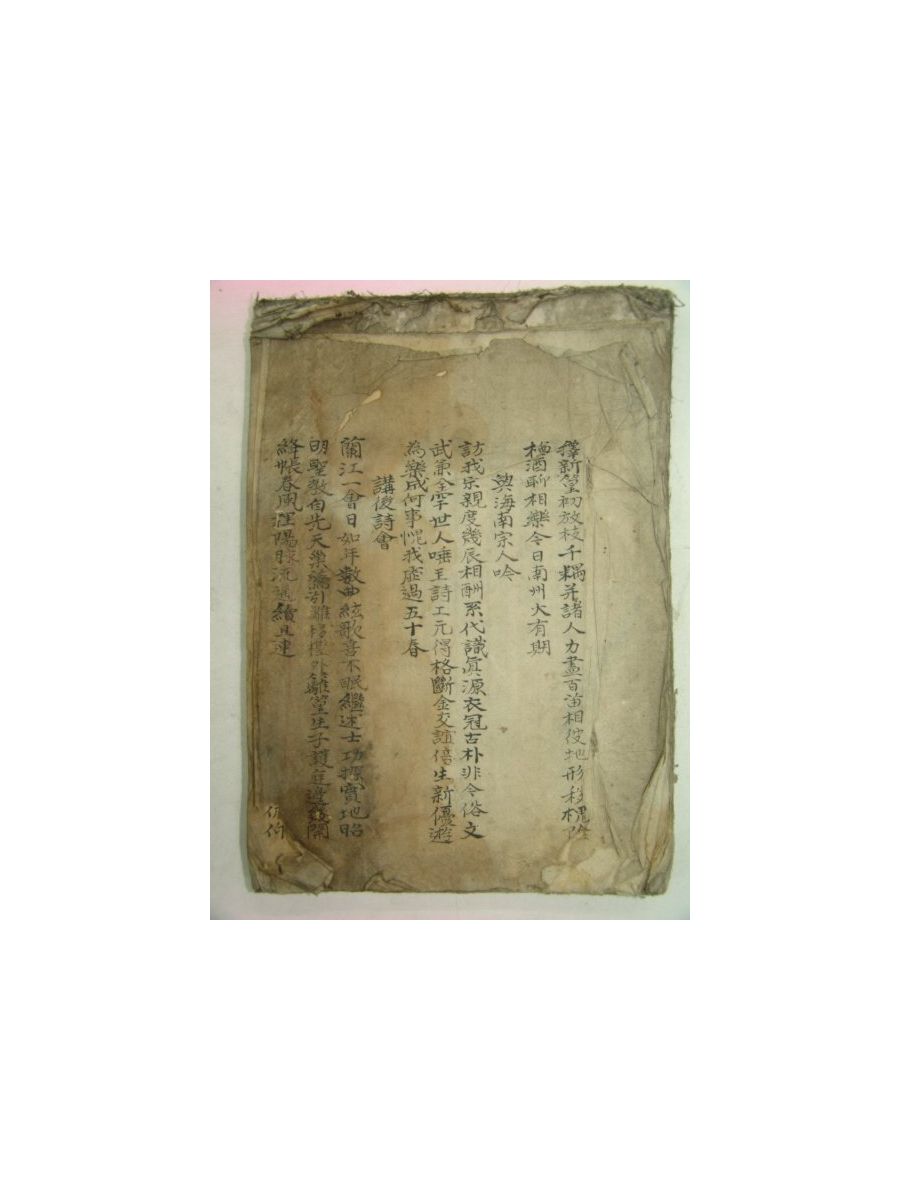 擇新篁初放枝千耦并諸人力盡百畓相使地形移槐陰
樽酒聊相樂今日南州大有期
與海南宗人唫
訪我宗親度幾辰相酬系代識眞源衣冠古朴非今俗文
武兼全罕世人唾玉詩工元得格斷金交誼倍生新優遊
為樂成何事愧我虛過五十春
講後詩會
蘭江一會日如年數曲絃歌喜不眠繼述士功探實地昭
明聖教自先天巢繞引雛移樓外籬篁生子護庭邊錢開
絳帳春風 陽 流 續且連